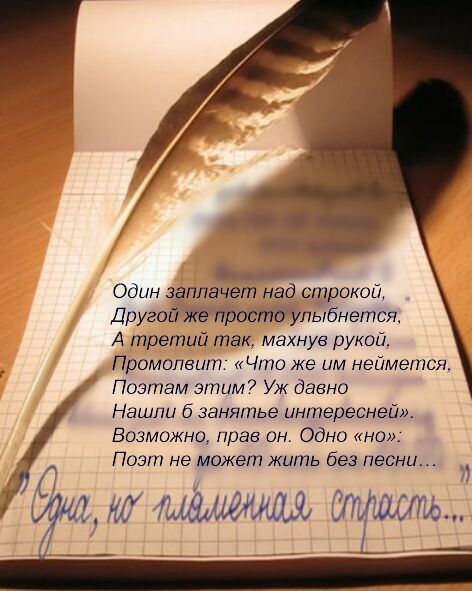 Один заплачет над строкой,
Другой же просто улыбнется,
А третий так, махнув рукой,
Промолвит: «Что же им неймется,
Поэтам этим? Уж давно
Нашли б занятье интересней».
Возможно, прав он. Одно «но»:
Поэт не может жить без песни...
"Одна, но пламенная страсть..."